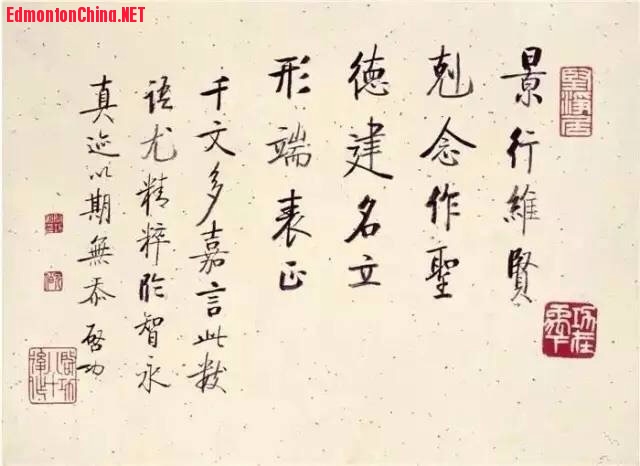 EdmontonChina.NET
景行維賢
剋念作聖
德建名立
形端表正
千文多嘉言此數
語尤精粹臨智永
真迹以期無忝啓功